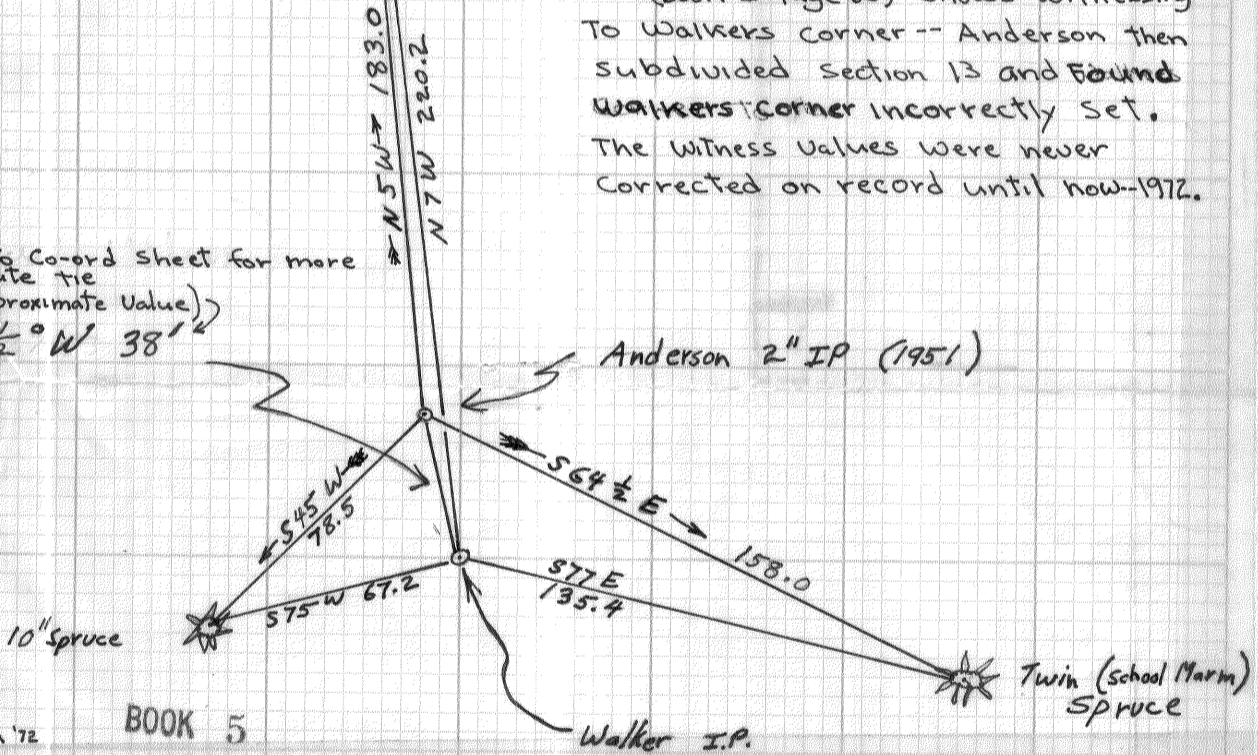 To Walkers corner -- Anderson then
subdivided section 13 and Found
Walkers corner incorrectly set.
The witness values were never
corrected on record until now--1972.
N 5 W 183.0
N 7 W 220.2
Co-ord sheet for more
tie
Value)
1/2 ° W 38'
Anderson 2" IP (1951)
S45 W
78.5
S 64 1/2 E
158.0
S75 W 67.2
S77 E
135.4
10" Spruce
Twin (School Marm)
Spruce
'72
BOOK 5
Walker I.P.